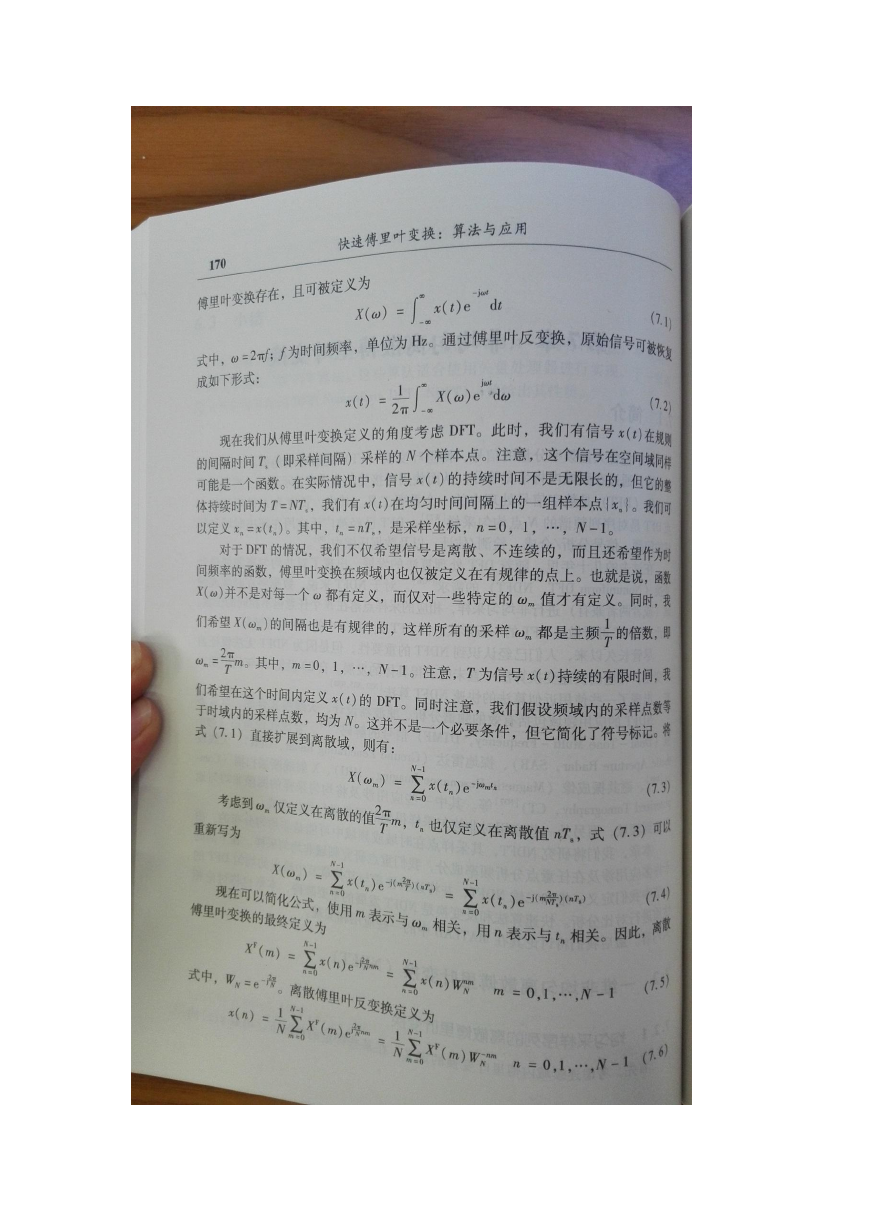 170
快速傅里叶变换：算法与应用
傅里叶变换存在，且可被定义为
X(ω) = ∫_{-∞}^{∞} x(t)e^{-jωt}dt (7.1)
式中，ω=2πf；f为时间频率，单位为 Hz。通过傅里叶反变换，原始信号可被恢复
成如下形式：
x(t) = \frac{1}{2π}∫_{-∞}^{∞} X(ω)e^{jωt}dω (7.2)
现在我们从傅里叶变换定义的角度考虑 DFT。此时，我们有信号 x(t)在规则
的间隔时间 T_s（即采样间隔）采样的 N 个样本点。注意，这个信号在空间域同样
可能是一个函数。在实际情况中，信号 x(t)的持续时间不是无限长的，但它的整
体持续时间为 T=NT_s，我们有 x(t)在均匀时间间隔上的一组样本点{x_n}。我们可
以定义 x_n=x(t_n)。其中，t_n=nT_s，是采样坐标，n=0，1，…，N-1。
对于 DFT 的情况，我们不仅希望信号是离散、不连续的，而且还希望作为时
间频率的函数，傅里叶变换在频域内也仅被定义在有规律的点上。也就是说，函数
X(ω)并不是对每一个 ω 都有定义，而仅对一些特定的 ω_m 值才有定义。同时，我
们希望 X(ω_m)的间隔也是有规律的，这样所有的采样 ω_m 都是主频\frac{1}{T}的倍数，即
ω_m=\frac{2π}{T}m。其中，m=0，1，…，N-1。注意，T 为信号 x(t)持续的有限时间，我
们希望在这个时间内定义 x(t)的 DFT。同时注意，我们假设频域内的采样点数等
于时域内的采样点数，均为 N。这并不是一个必要条件，但它简化了符号标记。将
式（7.1）直接扩展到离散域，则有：
X(ω_m) = \sum_{n=0}^{N-1} x(t_n)e^{-jω_m t_n} (7.3)
考虑到 ω_m 仅定义在离散的值\frac{2π}{T}m，t_n 也仅定义在离散值 nT_s，式（7.3）可以
重新写为
X(ω_m) = \sum_{n=0}^{N-1} x(t_n)e^{-j(m\frac{2π}{T})(nT_s)} = \sum_{n=0}^{N-1} x(t_n)e^{-j(m\frac{2π}{NT_s})(nT_s)} (7.4)
现在可以简化公式，使用 m 表示与 ω_m 相关，用 n 表示与 t_n 相关。因此，离散
傅里叶变换的最终定义为
X^F(m) = \sum_{n=0}^{N-1} x(n)e^{-j\frac{2π}{N}nm} = \sum_{n=0}^{N-1} x(n)W_N^{nm} m = 0,1,…,N-1 (7.5)
式中，W_N=e^{-j\frac{2π}{N}}。离散傅里叶反变换定义为
x(n) = \frac{1}{N}\sum_{m=0}^{N-1} X^F(m)e^{j\frac{2π}{N}nm} = \frac{1}{N}\sum_{m=0}^{N-1} X^F(m)W_N^{-nm} n = 0,1,…,N-1 (7.6)